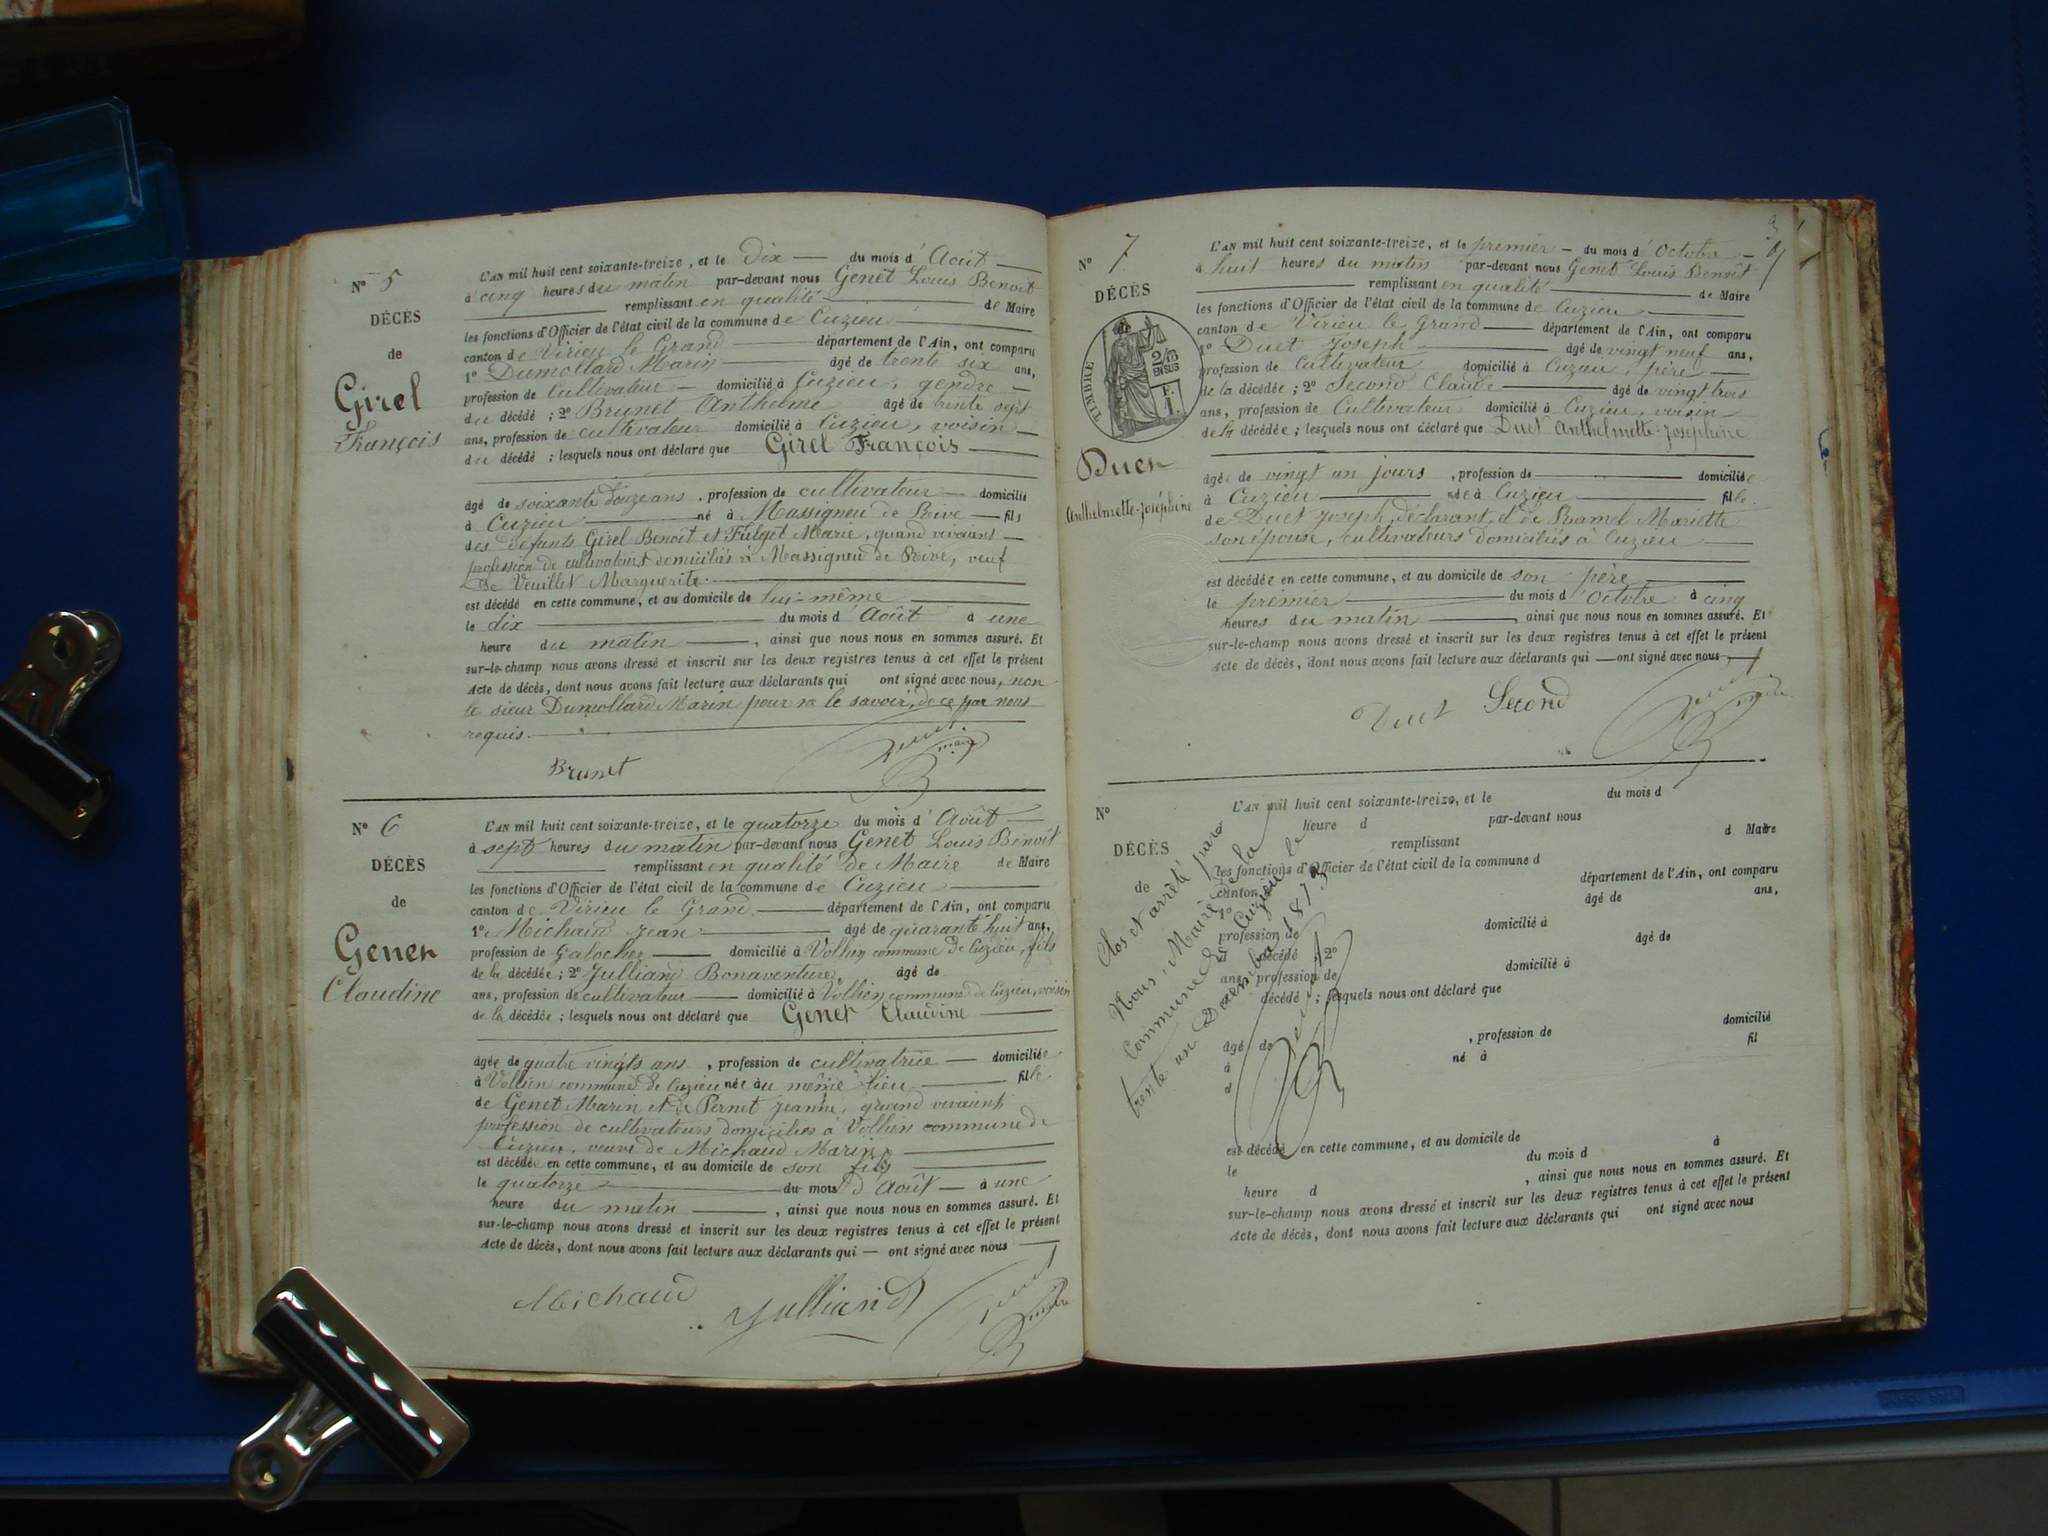 N° 5
DÉCÈS
de
Girel
François
L'AN mil huit cent soixante-treize, et le dix — du mois d'Août —
à cinq heures du matin par-devant nous Genet Louis Benoit
remplissant en qualité — de Maire
les fonctions d'Officier de l'état civil de la commune de Cuzieu —
canton de Virieu le Grand — département de l'Ain, ont comparu
1° Dumollard Marin — âgé de trente six ans,
profession de Cultivateur — domicilié à Cuzieu, gendre —
du décédé ; 2° Brunet Anthelme âgé de trente sept
ans, profession de cultivateur domicilié à Cuzieu, voisin —
du décédé ; lesquels nous ont déclaré que Girel François —
âgé de soixante douze ans, profession de cultivateur — domicilié
à Cuzieu — né à Massigneu de Rive — fils
des défunts Girel Benoit et Fulget Marie, quand vivaient —
profession de cultivateurs domiciliés à Massigneu de Rive, veuf
de Veuillet Marguerite —
est décédé en cette commune, et au domicile de lui-même —
le dix — du mois d'Août à une
heure du matin —, ainsi que nous nous en sommes assuré. Et
sur-le-champ nous avons dressé et inscrit sur les deux registres tenus à cet effet le présent
Acte de décès, dont nous avons fait lecture aux déclarants qui ont signé avec nous, non
le sieur Dumollard Marin pour ne le savoir, de ce par nous
requis. —
Brunet
Genet
maire
N° 6
DÉCÈS
de
Genet
Claudine
L'AN mil huit cent soixante-treize, et le quatorze du mois d'Août —
à sept heures du matin par-devant nous Genet Louis Benoit
remplissant en qualité de Maire de Maire
les fonctions d'Officier de l'état civil de la commune de Cuzieu —
canton de Virieu le Grand — département de l'Ain, ont comparu
1° Michaud Jean — âgé de quarante huit ans,
profession de Galocher — domicilié à Vollien commune de Cuzieu, fils
de la décédée ; 2° Julliand Bonaventure, âgé de
ans, profession de cultivateur — domicilié à Vollien commune de Cuzieu, voisin
de la décédée ; lesquels nous ont déclaré que Genet Claudine —
âgée de quatre vingts ans, profession de cultivatrice — domiciliée
à Vollien commune de Cuzieu née au même lieu — fille
de Genet Marin et de Pernet Jeanne, quand vivaient
profession de cultivateurs domiciliés à Vollien commune de
Cuzieu, veuve de Michaud Marin —
est décédée en cette commune, et au domicile de son fils —
le quatorze — du mois d'Août — à une
heure du matin —, ainsi que nous nous en sommes assuré. Et
sur-le-champ nous avons dressé et inscrit sur les deux registres tenus à cet effet le présent
Acte de décès, dont nous avons fait lecture aux déclarants qui — ont signé avec nous —
Michaud
Julliand
Genet
maire
N° 7
DÉCÈS
TIMBRE
2/10
EN SUS
F.
1.
Duet
Anthelmette-Joséphine
L'AN mil huit cent soixante-treize, et le premier — du mois d'Octobre —
à huit heures du matin par-devant nous Genet Louis Benoit
remplissant en qualité — de Maire
les fonctions d'Officier de l'état civil de la commune de Cuzieu —
canton de Virieu le Grand — département de l'Ain, ont comparu
1° Duet Joseph — âgé de vingt neuf ans,
profession de Cultivateur domicilié à Cuzieu, père —
de la décédée ; 2° Second Claude — âgé de vingt trois
ans, profession de Cultivateur domicilié à Cuzieu, voisin
de la décédée ; lesquels nous ont déclaré que Duet Anthelmette-Joséphine
âgée de vingt un jours, profession de — domiciliée
à Cuzieu — née à Cuzieu — fille
de Duet Joseph, déclarant et de Ramel Mariette
son épouse, cultivateurs domiciliés à Cuzieu —
est décédée en cette commune, et au domicile de son père —
le premier — du mois d'Octobre à cinq
heures du matin —, ainsi que nous nous en sommes assuré. Et
sur-le-champ nous avons dressé et inscrit sur les deux registres tenus à cet effet le présent
Acte de décès, dont nous avons fait lecture aux déclarants qui — ont signé avec nous, —
Duet
Second
Genet
maire
N°
DÉCÈS
de
L'AN mil huit cent soixante-treize, et le du mois d
heure d par-devant nous
remplissant d Maire
les fonctions d'Officier de l'état civil de la commune d
canton département de l'Ain, ont comparu
1° âgé de ans,
profession de domicilié à
décédé ; 2° âgé de
ans, profession de domicilié à
décédé ; lesquels nous ont déclaré que
âgé de , profession de domicilié
à né à fil
d
est décédé en cette commune, et au domicile de
le du mois d à
heure d , ainsi que nous nous en sommes assuré. Et
sur-le-champ nous avons dressé et inscrit sur les deux registres tenus à cet effet le présent
Acte de décès, dont nous avons fait lecture aux déclarants qui ont signé avec nous
Clos et arrêté par
Nous, Maire de la
Commune de Cuzieu le
trente un Décembre 1873
Genet